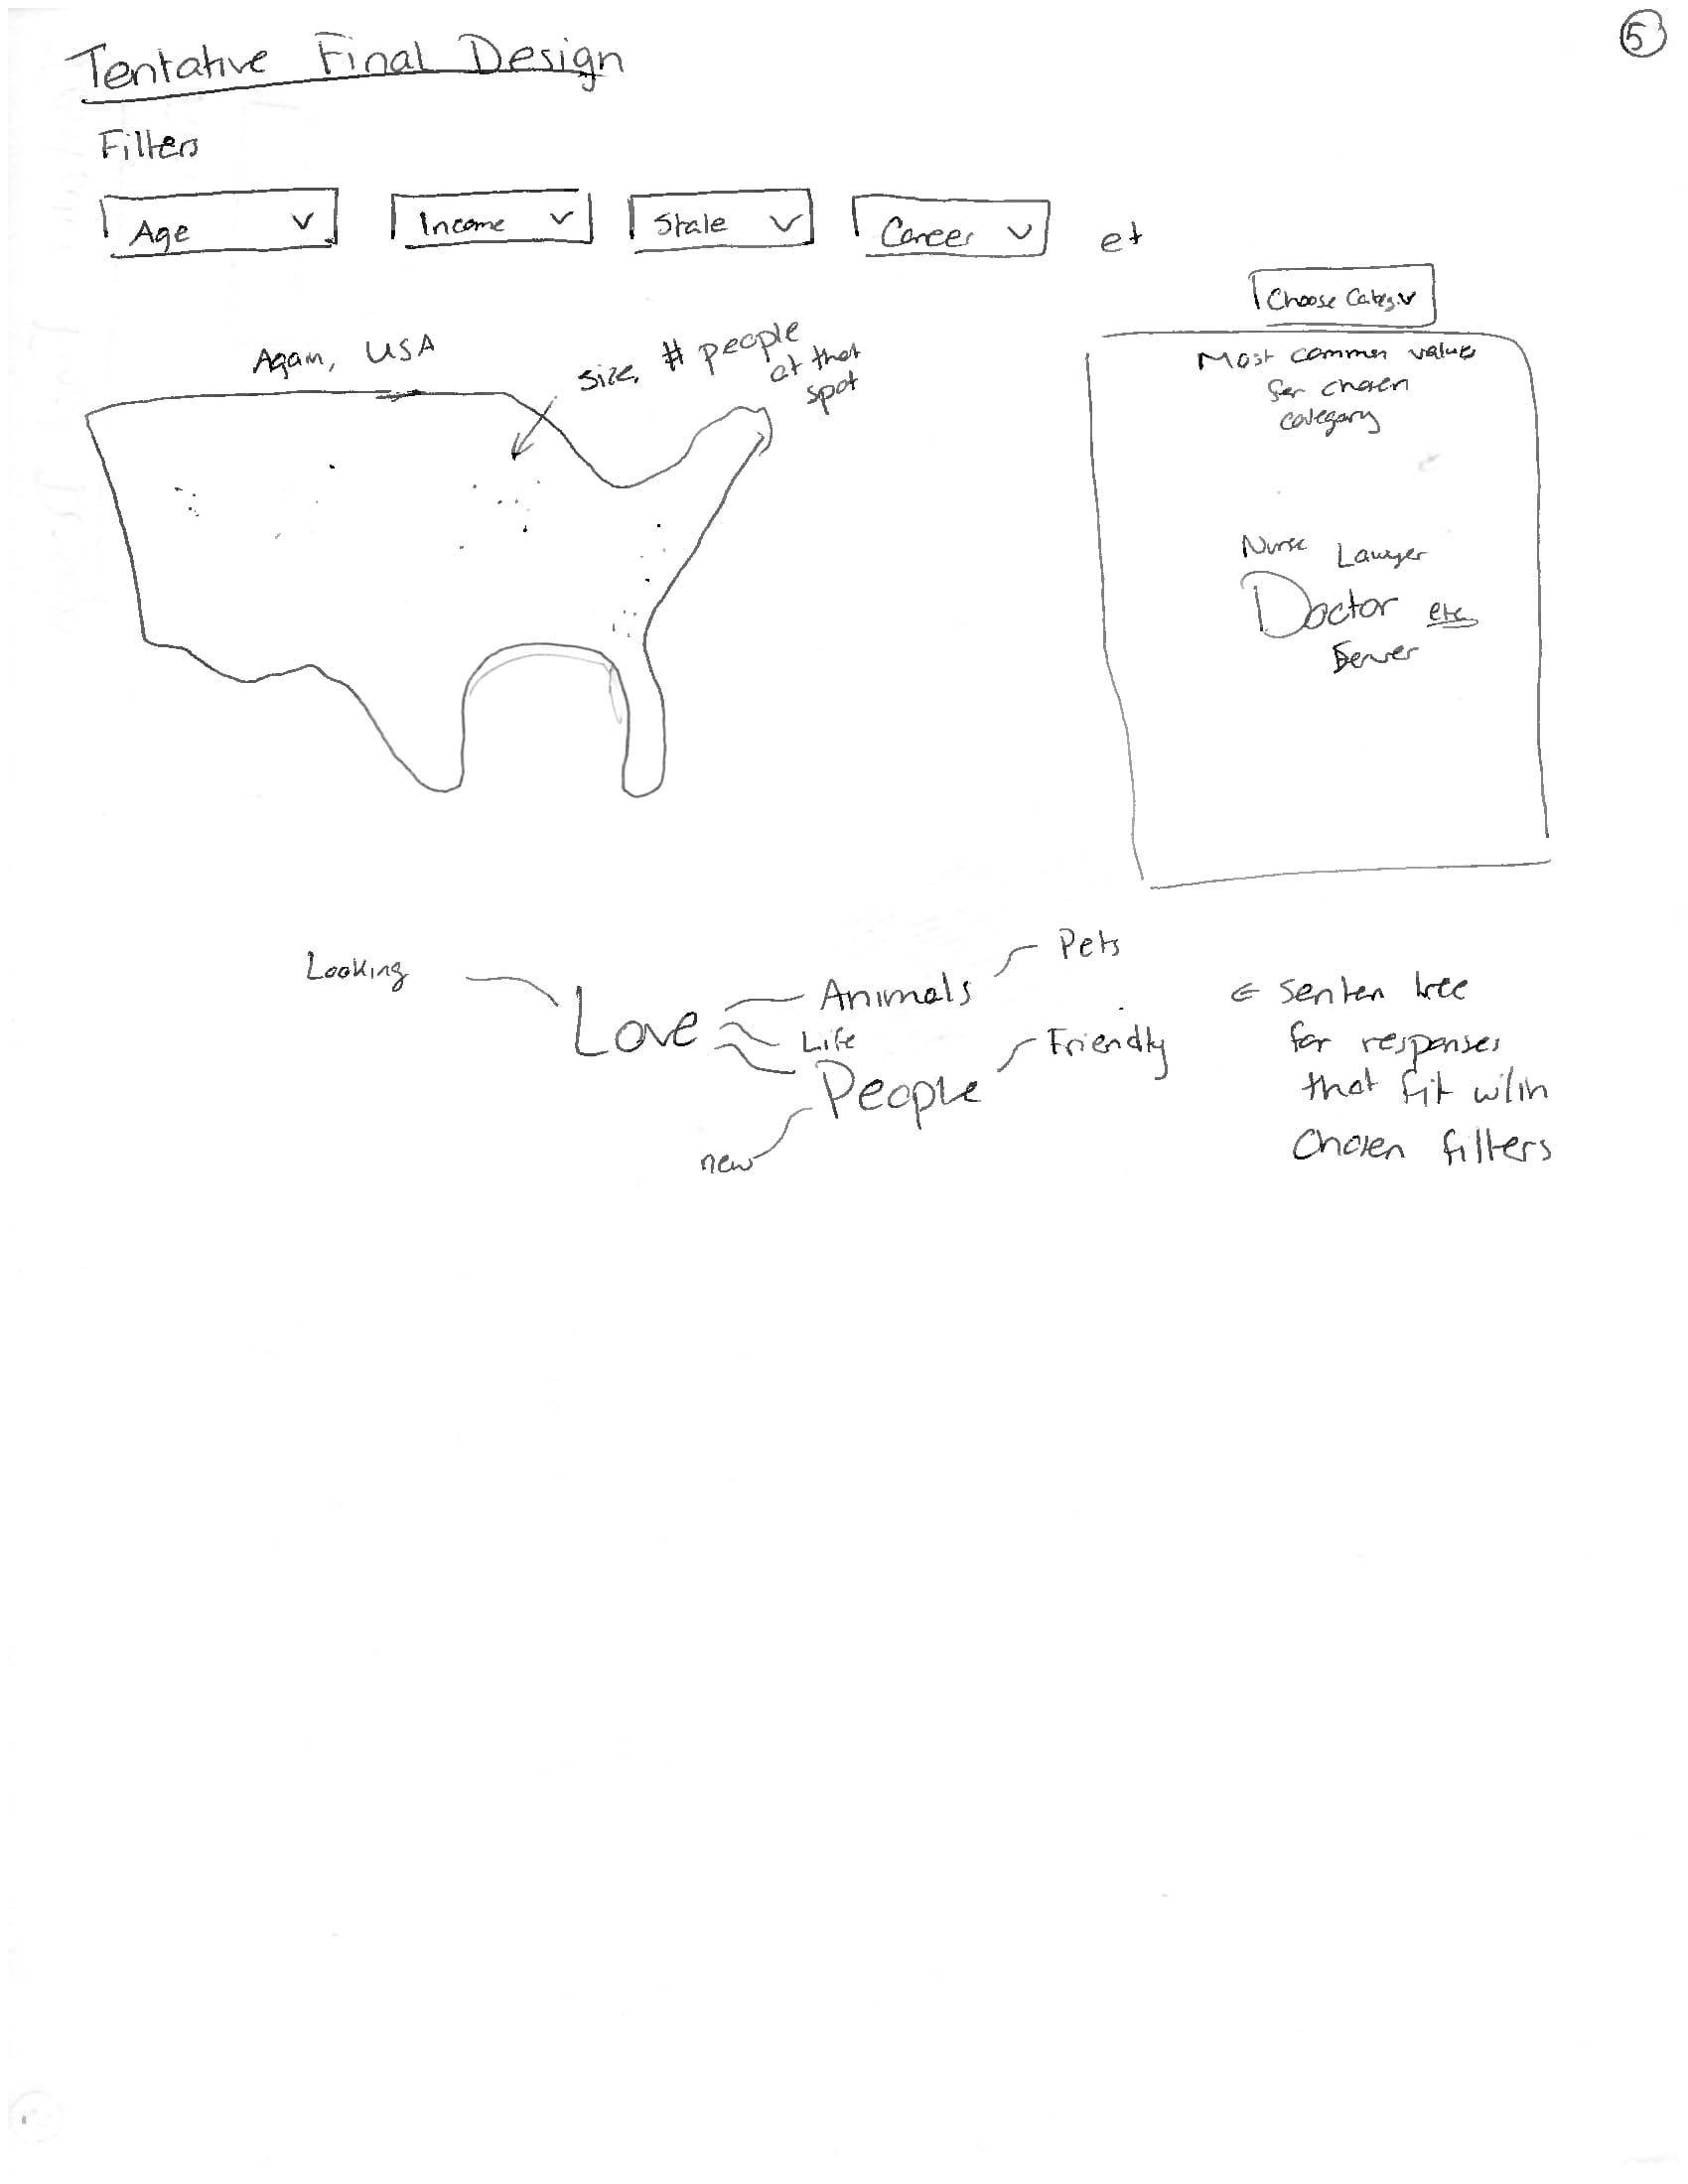 5
Tentative Final Design
Filters
Age
Income
State
Career
et
Choose Categ.
Again, USA
size, # people
at that
spot
Most common values
for chosen
category
Nurse Lawyer
Doctor etc
Server
Looking
Love
Animals
Pets
Life
People
Friendly
new
← senten tree
for responses
that fit w/in
chosen filters